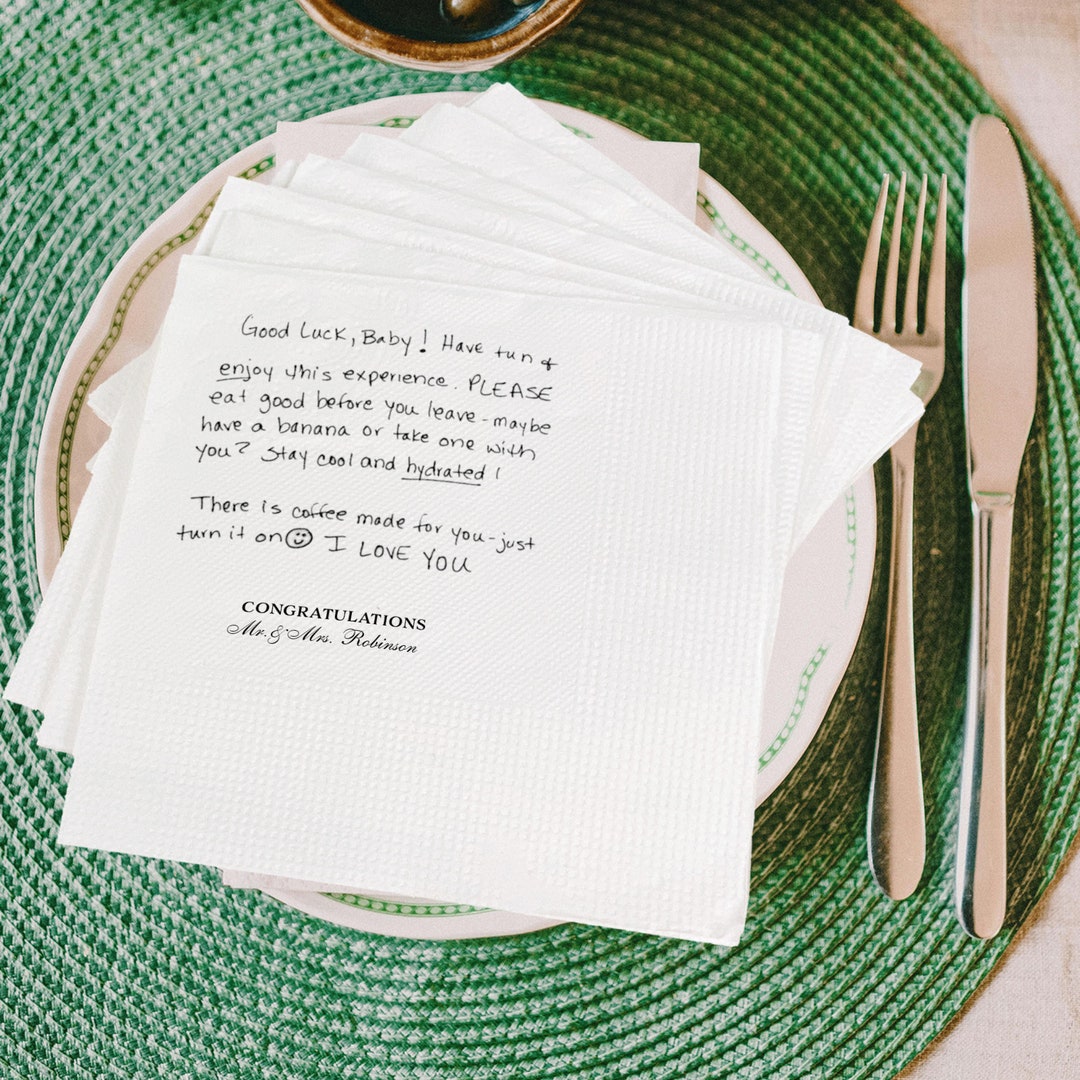 Good Luck, Baby! Have fun &
enjoy this experience. PLEASE
eat good before you leave - maybe
have a banana or take one with
you? Stay cool and hydrated!
There is coffee made for you - just
turn it on ☺ I LOVE YOU
CONGRATULATIONS
Mr. & Mrs. Robinson